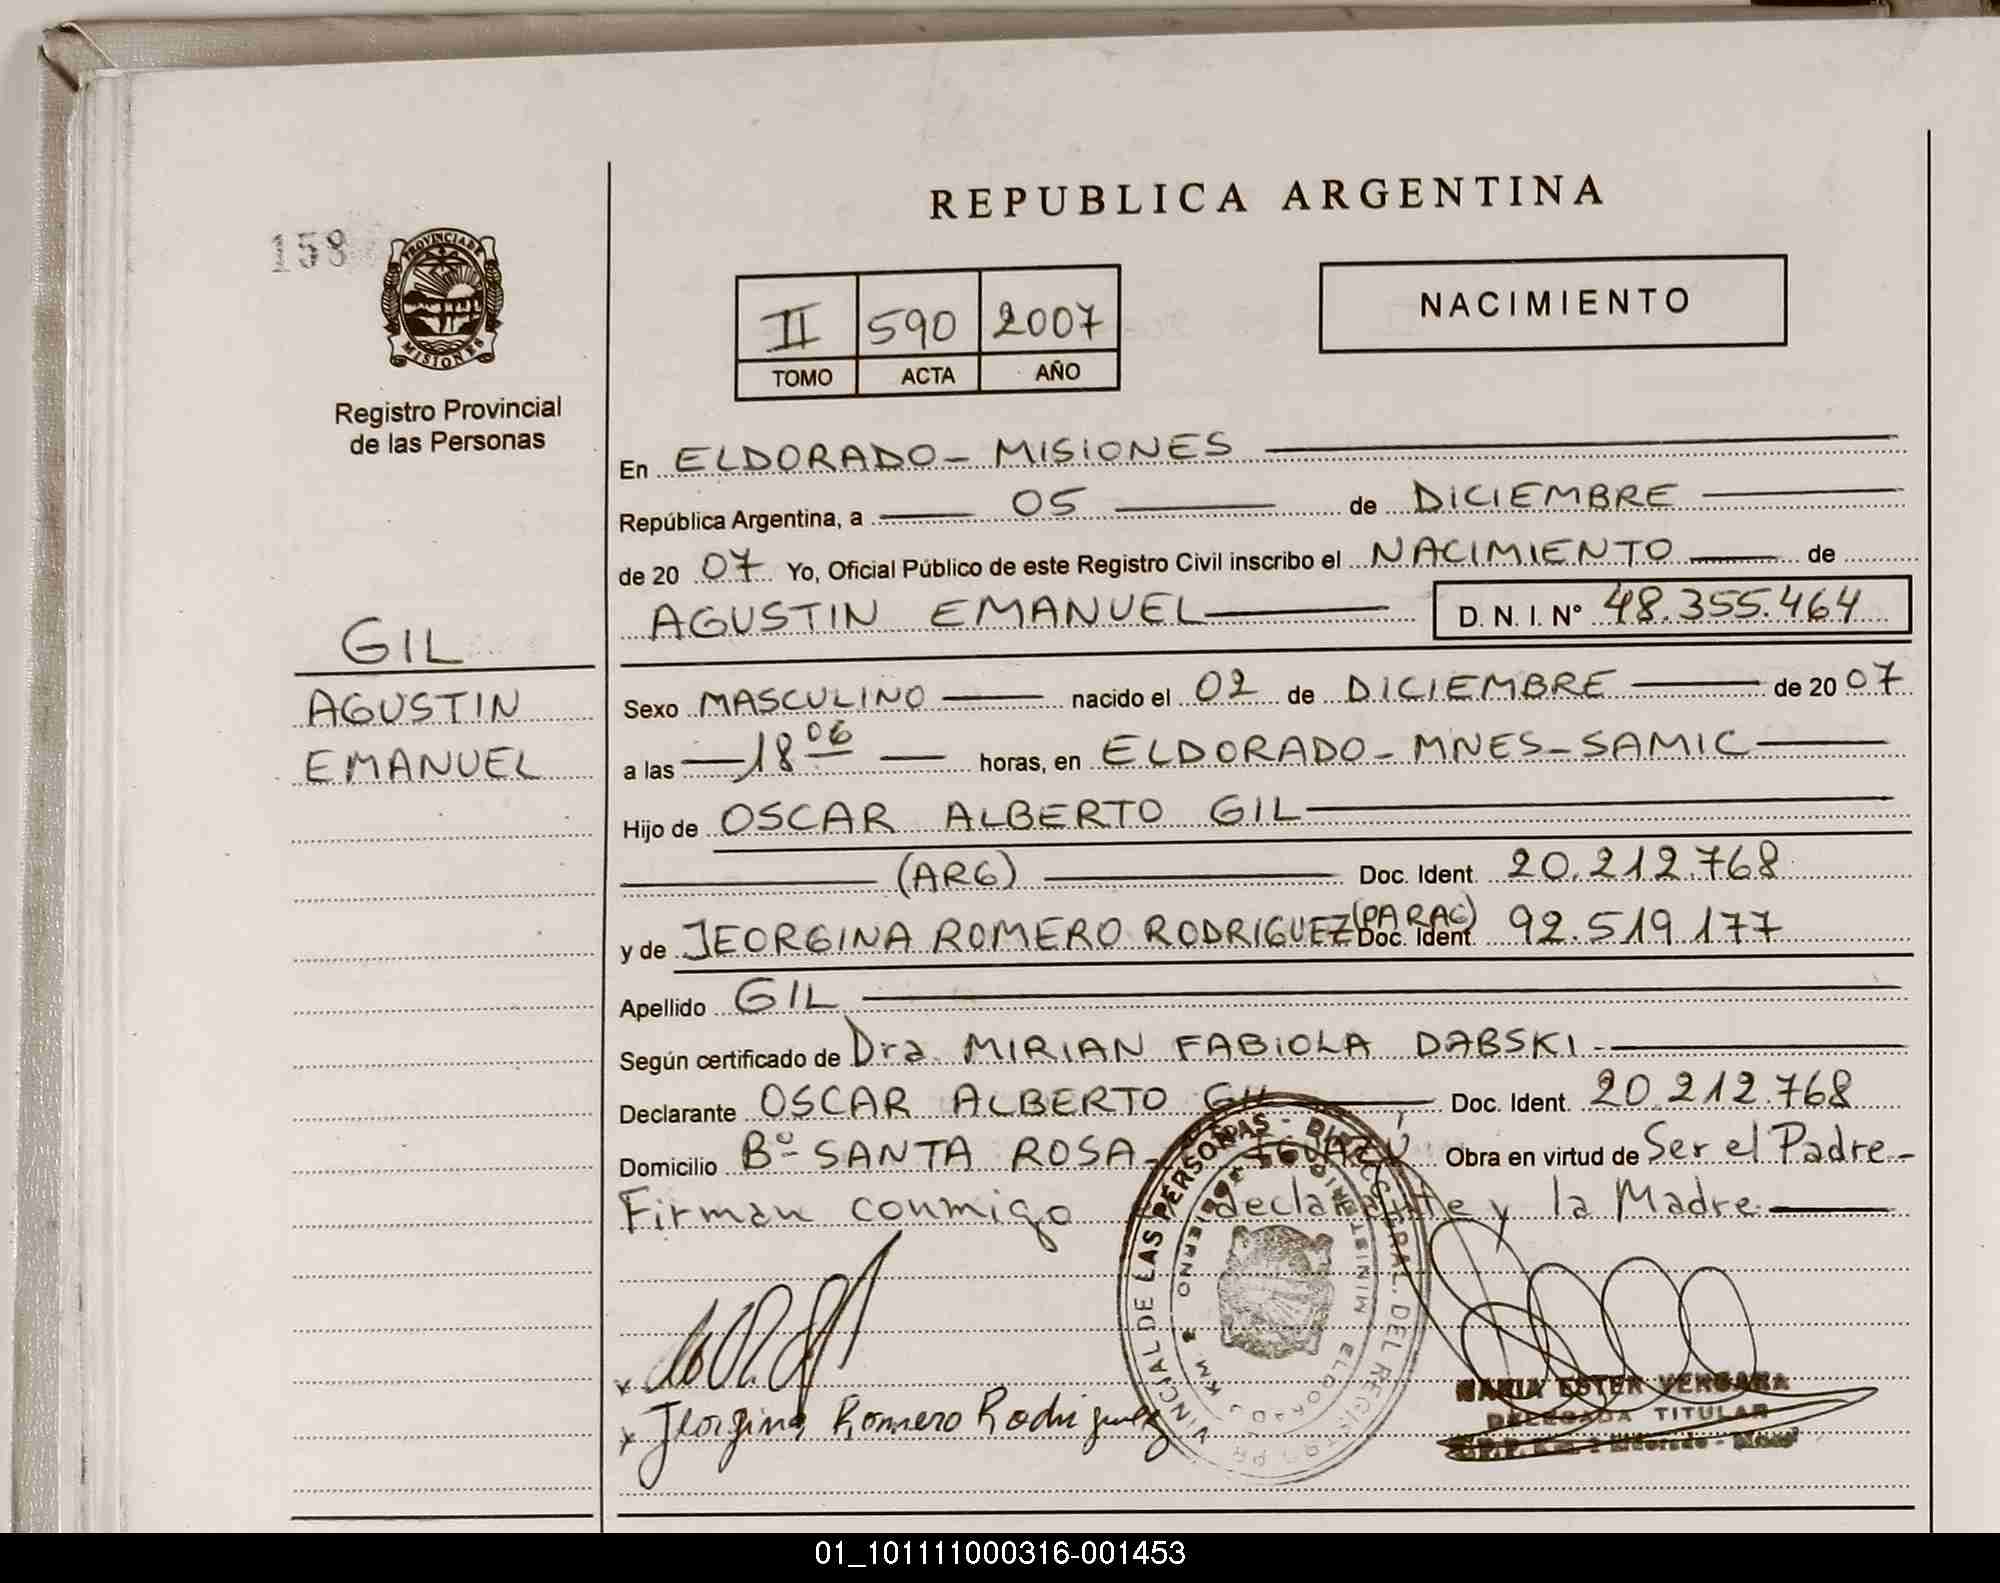 REPUBLICA ARGENTINA
158
PROVINCIA DE
MISIONES
Registro Provincial
de las Personas
II 590 2007
TOMO ACTA AÑO
NACIMIENTO
En ELDORADO - MISIONES
República Argentina, a 05 de DICIEMBRE
de 20 07 Yo, Oficial Público de este Registro Civil inscribo el NACIMIENTO de
AGUSTIN EMANUEL D. N. I. Nº 48.355.464
GIL
AGUSTIN
EMANUEL
Sexo MASCULINO nacido el 02 de DICIEMBRE de 20 07
a las 18 06 horas, en ELDORADO - MNES - SAMIC
Hijo de OSCAR ALBERTO GIL
(ARG) Doc. Ident. 20.212.768
y de JEORGINA ROMERO RODRIGUEZ (PARAG) Doc. Ident. 92.519.177
Apellido GIL
Según certificado de Dra. MIRIAN FABIOLA DABSKI
Declarante OSCAR ALBERTO GIL Doc. Ident. 20.212.768
Domicilio Bº SANTA ROSA - IGUAZÚ Obra en virtud de Ser el Padre -
Firman conmigo declarante y la Madre
Jeorgina Romero Rodriguez
MARIA ESTER VERGARA
DELEGADA TITULAR
01_101111000316-001453